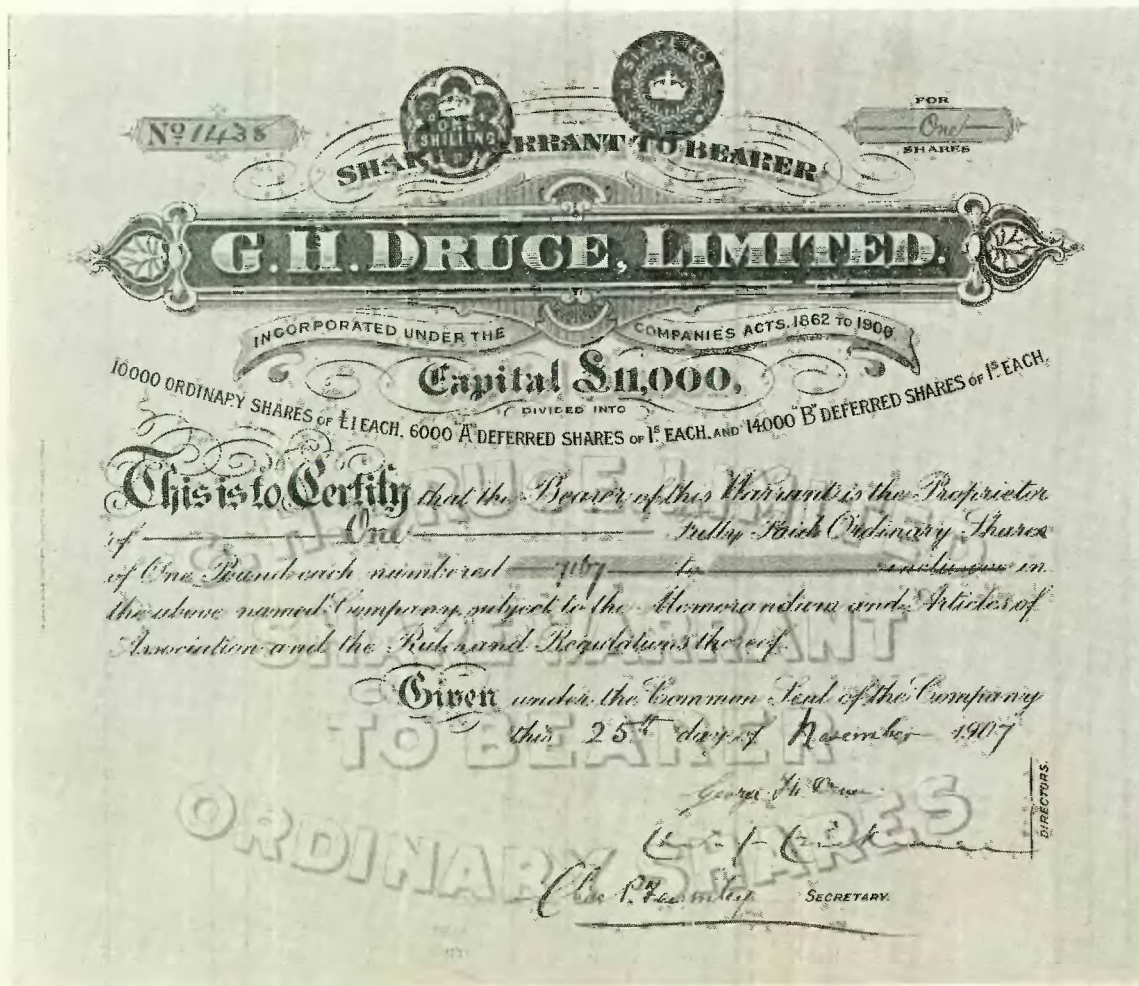 SIX PENCE
ONE
SHILLING
No 11438
FOR
One
SHARES
SHARE WARRANT TO BEARER
G. H. DRUCE, LIMITED.
INCORPORATED UNDER THE COMPANIES ACTS, 1862 TO 1900
Capital £11,000,
DIVIDED INTO
10000 ORDINARY SHARES OF £1 EACH, 6000 "A" DEFERRED SHARES OF 1s. EACH, AND 14000 "B" DEFERRED SHARES OF 1s. EACH.
This is to Certify that the Bearer of this Warrant is the Proprietor
of One Fully Paid Ordinary Shares
of One Pound each numbered 7167 to inclusive in
the above named Company, subject to the Memorandum and Articles of
Association and the Rules and Regulations thereof.
Given under the Common Seal of the Company
this 25th day of November 1907
George H. Druce
DIRECTORS.
SECRETARY.
G. H. DRUCE LIMITED
SHARE WARRANT
TO BEARER
ORDINARY SHARES